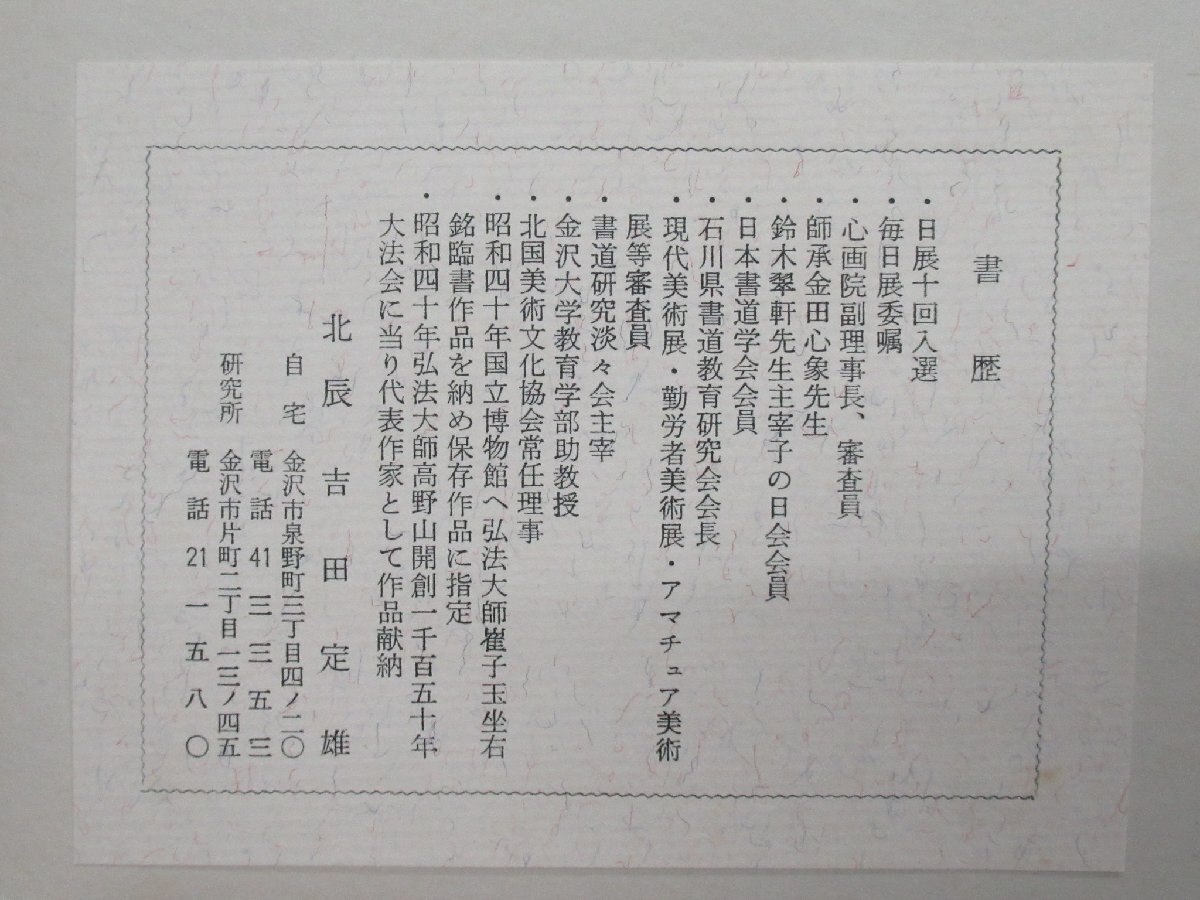 書歴
・日展十回入選
・毎日展委嘱
・心画院副理事長、審査員
・師承金田心象先生
・鈴木翠軒先生主宰子の日会会員
・日本書道学会会員
・石川県書道教育研究会会長
・現代美術展・勤労者美術展・アマチュア美術
展等審査員
・書道研究淡々会主宰
・金沢大学教育学部助教授
・北国美術文化協会常任理事
・昭和四十年国立博物館へ弘法大師崔子玉坐右
銘臨書作品を納め保存作品に指定
・昭和四十年弘法大師高野山開創一千百五十年
大法会に当り代表作家として作品献納
北辰 吉田定雄
自宅 金沢市泉野町三丁目四ノ二〇
電話 41 三三五三
研究所 金沢市片町二丁目一三ノ四五
電話 21 一五八〇